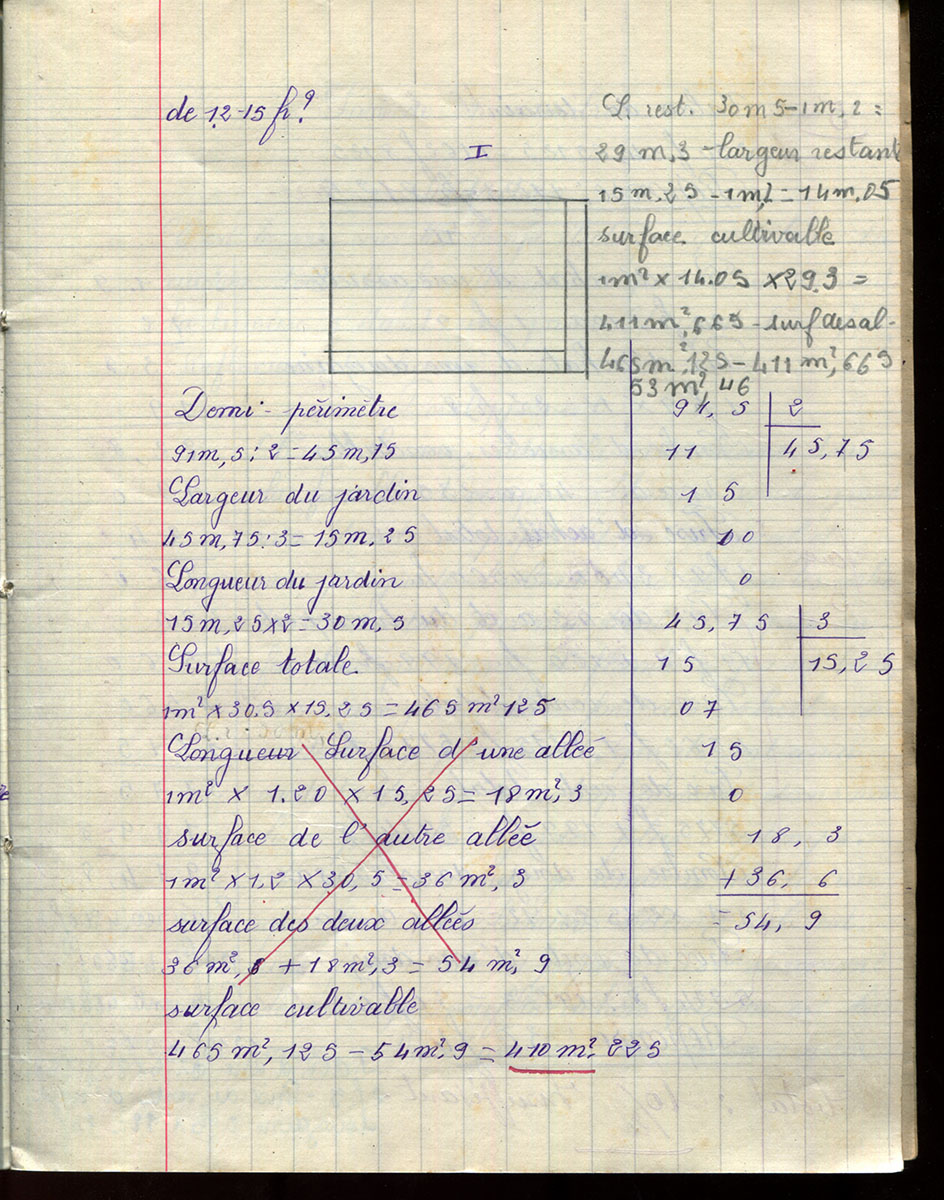 de 12-15 fr?
I
L. rest. 30m5-1m,2 =
29 m,3 - largeur restant
15m,25 - 1m,2 = 14m,05
surface cultivable
1m² x 14.05 x 29.3 =
411m²,665 - surf des al-
465m²,125 - 411m²,665
53m²,46
Demi-périmètre
91m,5 : 2 = 45m,75
Largeur du jardin
45m,75 : 3 = 15m,25
Longueur du jardin
15m,25 x 2 = 30m,5
Surface totale.
1m² x 30.5 x 15,25 = 465m²125
Longueur Surface d'une allée
1m² x 1.20 x 15,25 = 18m²,3
surface de l'autre allée
1m² x 1,2 x 30,5 = 36m²,3
surface des deux allées
36m²,6 + 18m²,3 = 54m²,9
surface cultivable
465m²,125 - 54m²,9 = 410m².225
91,5 2
11 45,75
15
00
0
45,75 3
15 15,25
07
15
0
18,3
+ 36,6
= 54,9